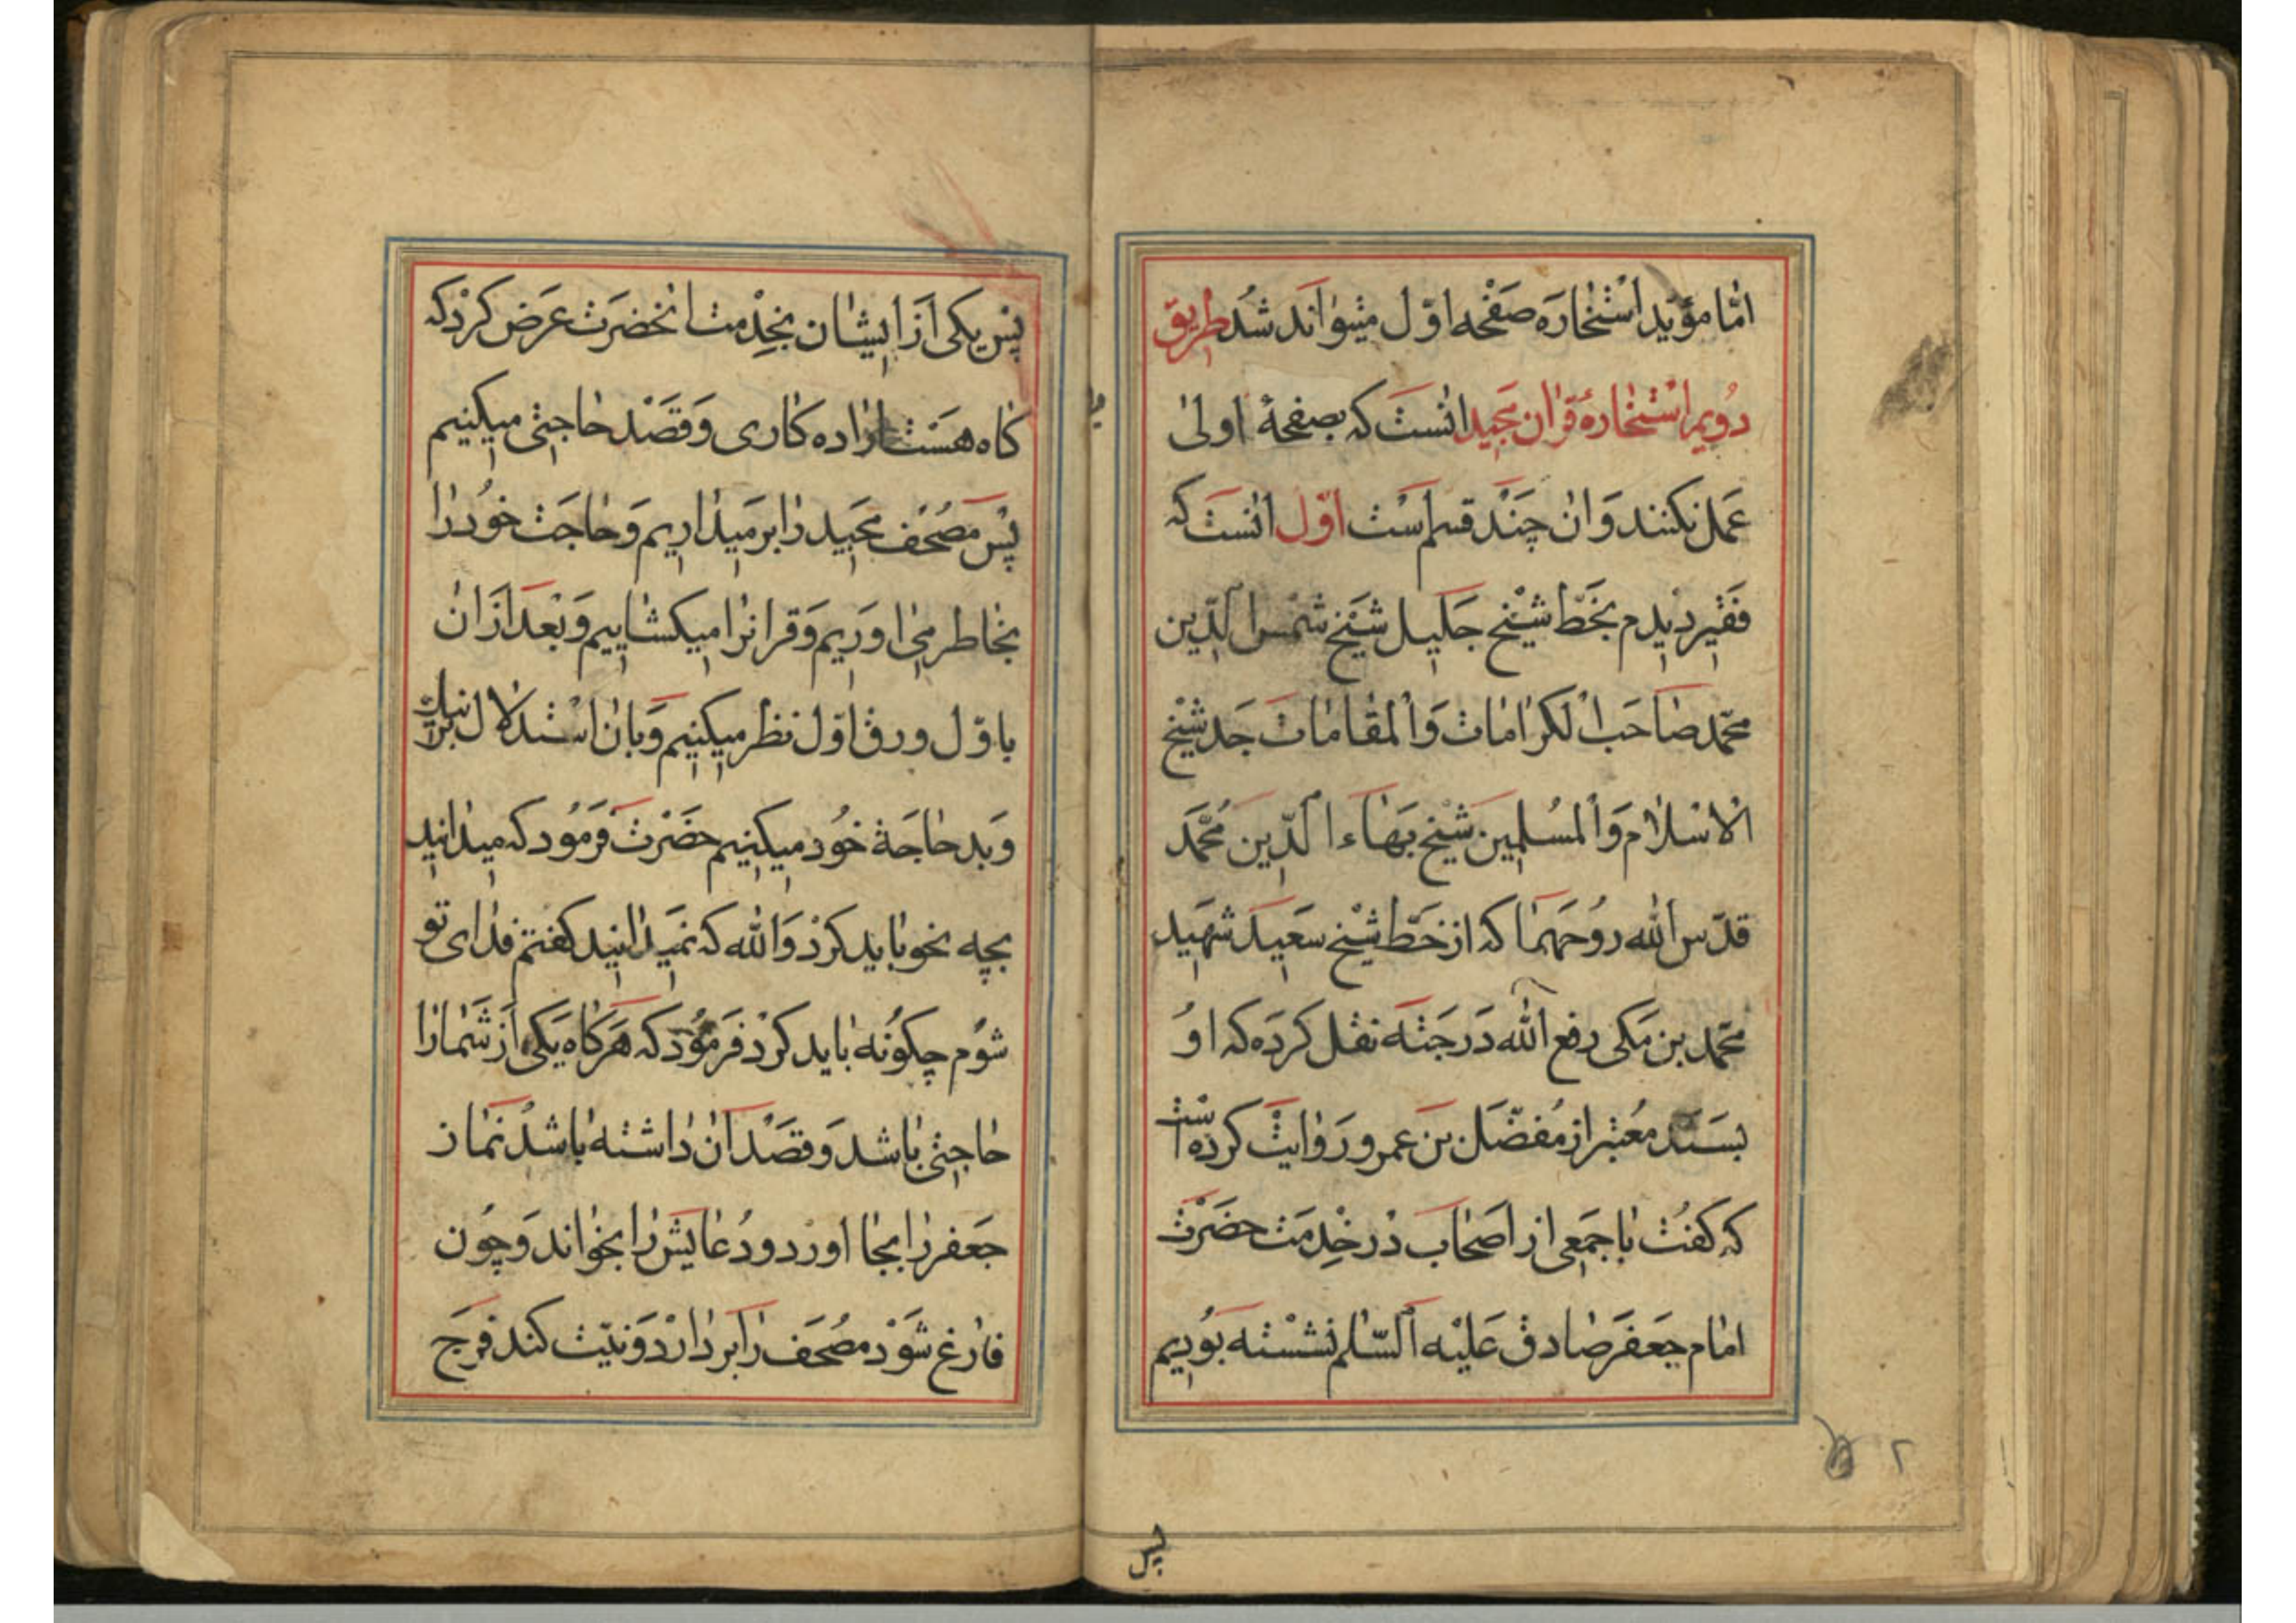 امّا مؤیّد استخاره صفحه اوّل میتواند شد طریق
دویم استخارهٔ قران مجید انست که بصفحهٔ اولی
عمل نکنند وان چند قسم است اوّل انست که
فقیر دیدم بخطّ شیخ جلیل شیخ شمس الدّین
محمّد صاحب الکرامات والمقامات جد شیخ
الاسلام والمسلمین شیخ بهاء الدّین محمّد
قدّس الله روحهما که از خطّ شیخ سعید شهید
محمّد بن مکی رفع الله درجته نقل کرده که او
بسند معتبر از مفضّل بن عمرو روایت کرده است
که گفت با جمعی از اصحاب در خدمت حضرت
امام جعفر صادق علیه السّلم نشسته بودیم
پس
پس یکی از ایشان بخدمت انحضرت عرض کرد که
کاه هست اراده کاری وقصد حاجتی میکنیم
پس مصحف مجید را بر میداریم وحاجت خود را
بخاطر می اوریم وقرانرا میکشاییم وبعد ازان
باوّل ورق اوّل نظر میکنیم وبان استدلال بر نیک
وبد حاجة خود میکنیم حضرت فرمود که میدانید
بچه نحو باید کرد والله که نمیدانید کفتم فدای تو
شوم چکونه باید کرد فرمود که هرکاه یکی از شما را
حاجتی باشد وقصد ان داشته باشد نماز
جعفر را بجا اورد ودعایش را بخواند وچون
فارغ شود مصحف را بر دارد ونیّت کند فرج
۲